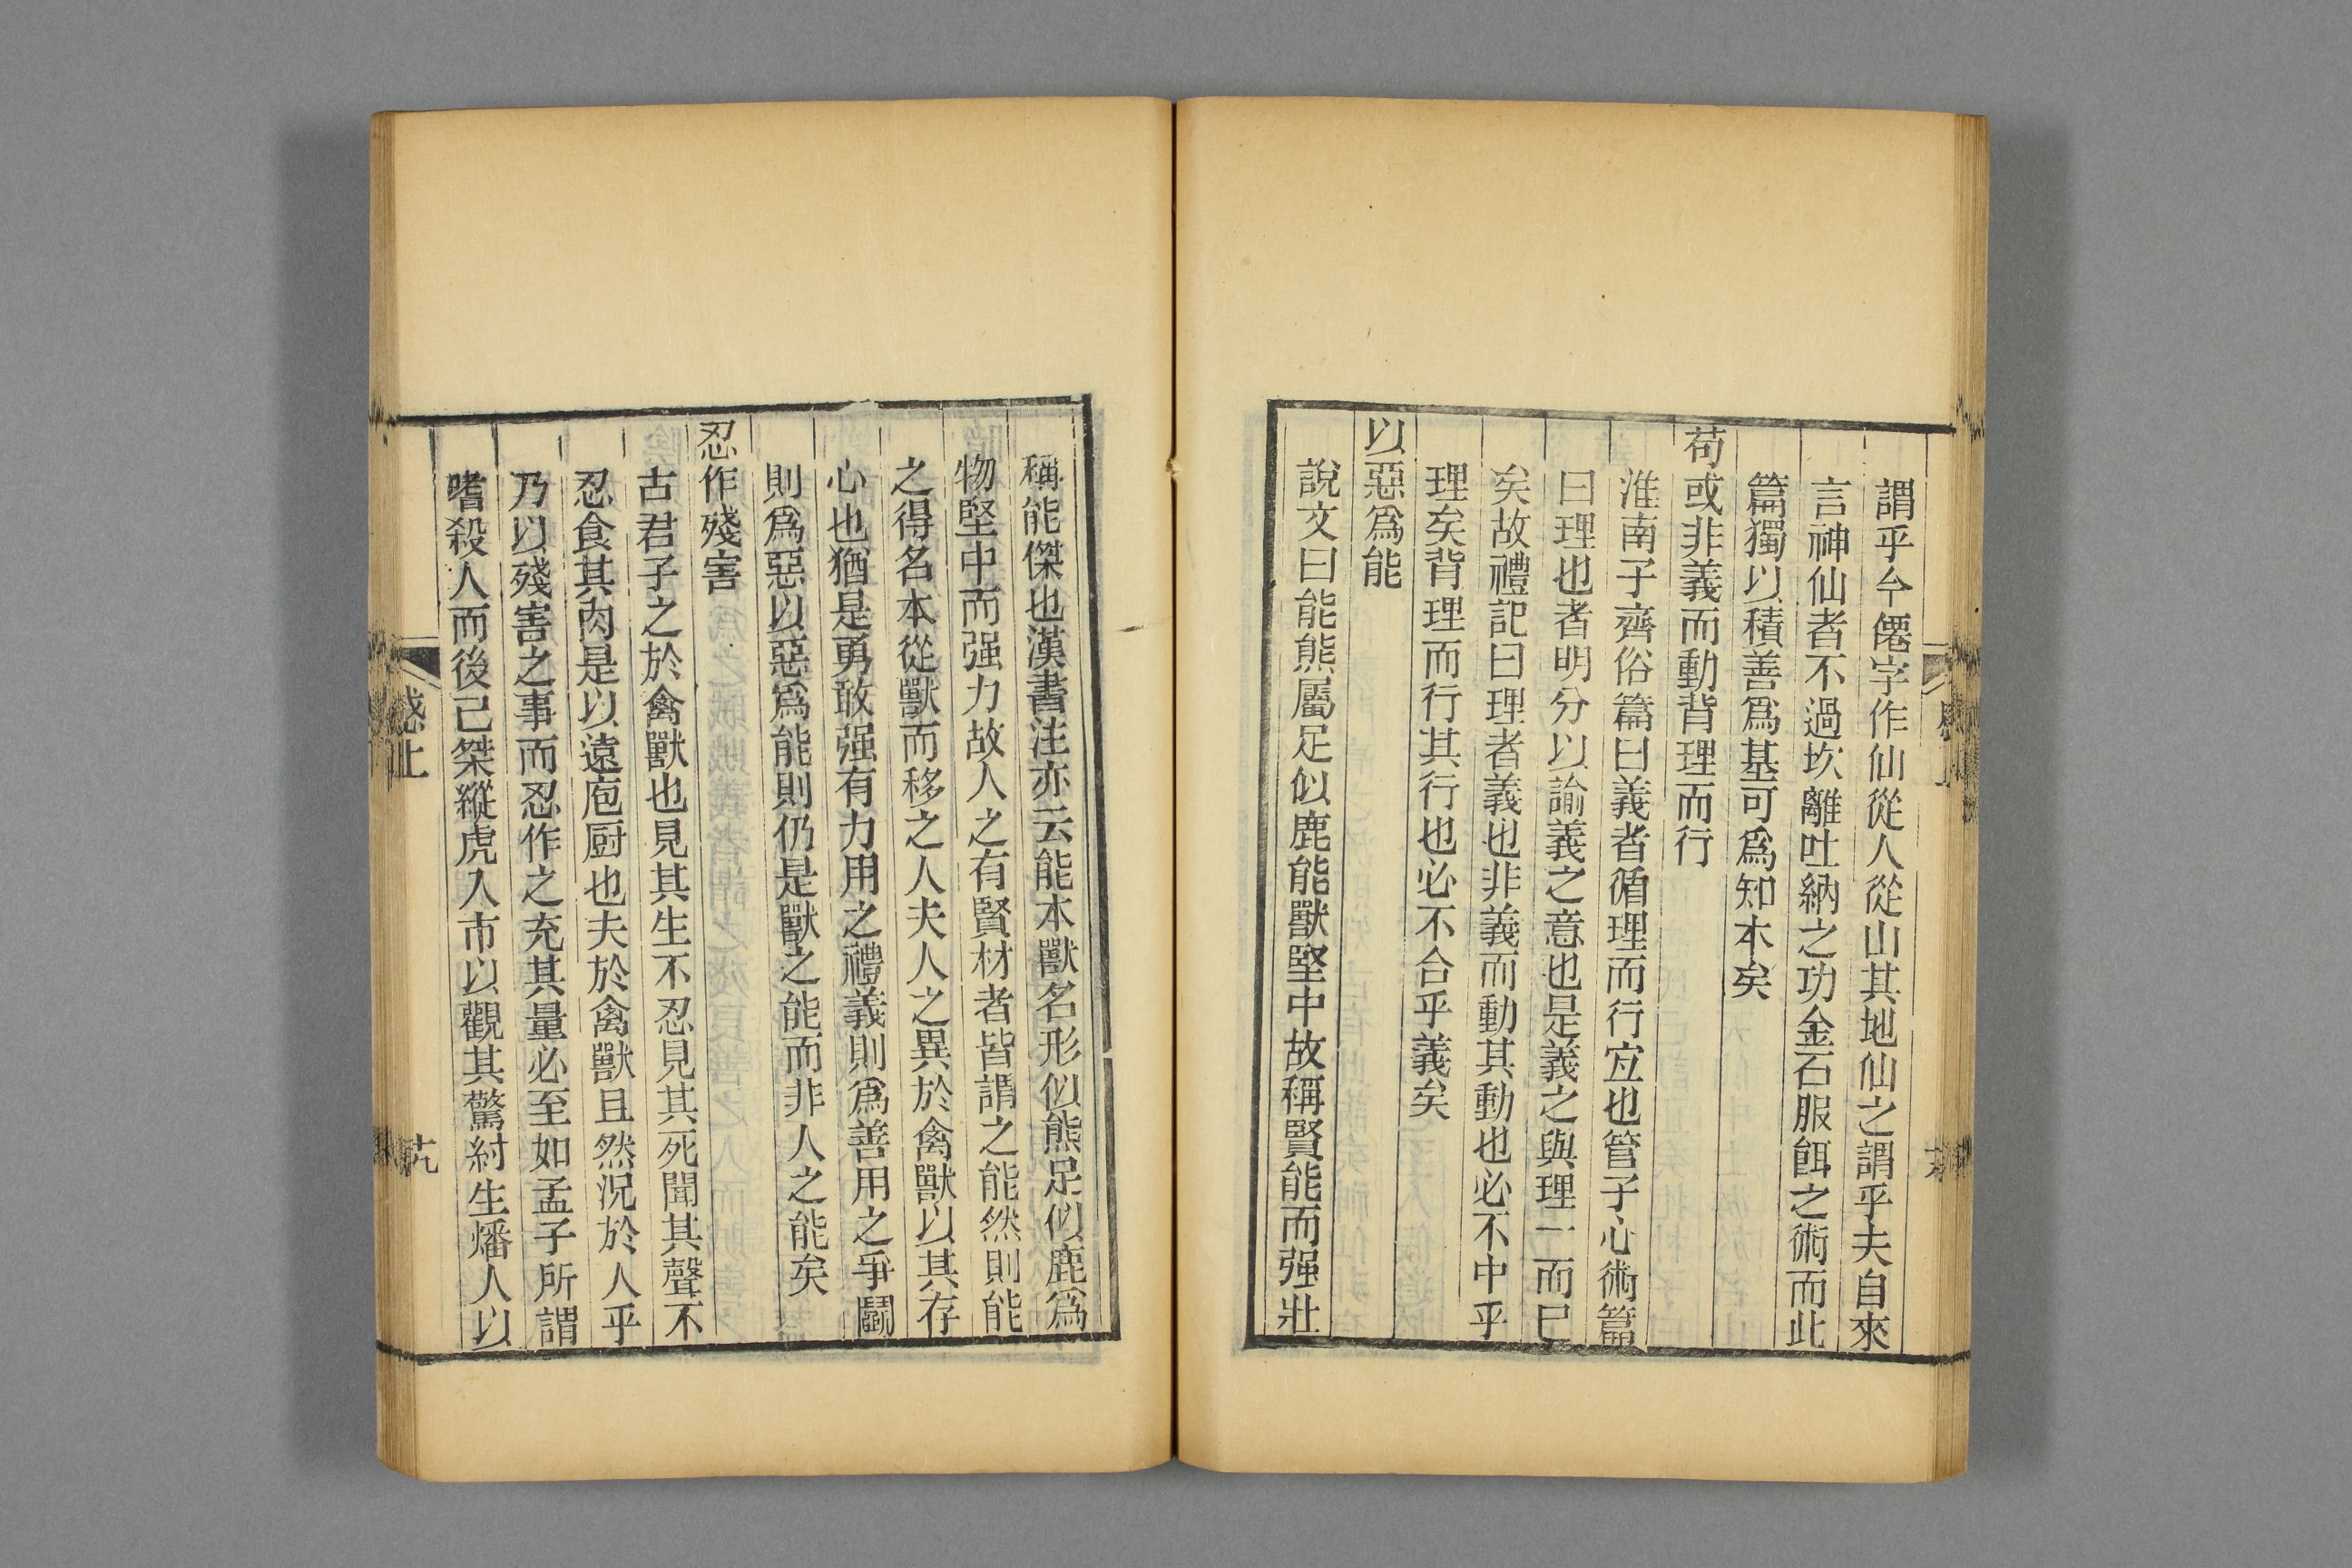 謂乎今僊字作仙從人從山其地仙之謂乎夫自來
言神仙者不過坎離吐納之功金石服餌之術而此
篇獨以積善爲基可爲知本矣
苟或非義而動背理而行
淮南子齊俗篇曰義者循理而行宜也管子心術篇
曰理也者明分以諭義之意也是義之與理一而已
矣故禮記曰理者義也非義而動其動也必不中乎
理矣背理而行其行也必不合乎義矣
以惡爲能
說文曰能熊屬足似鹿能獸堅中故稱賢能而强壯
稱能傑也漢書注亦云能本獸名形似熊足似鹿爲
物堅中而强力故人之有賢材者皆謂之能然則能
之得名本從獸而移之人夫人之異於禽獸以其存
心也猶是勇敢强有力用之禮義則爲善用之爭鬭
則爲惡以惡爲能則仍是獸之能而非人之能矣
忍作殘害
古君子之於禽獸也見其生不忍見其死聞其聲不
忍食其肉是以遠庖厨也夫於禽獸且然況於人乎
乃以殘害之事而忍作之充其量必至如孟子所謂
嗜殺人而後已桀縱虎入市以觀其驚紂生燔人以
感上